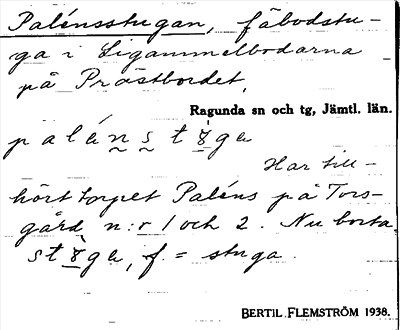 Palénsstugan, fäbodstu-
ga i Ligammelbodarna
på Prästbordet,
Ragunda sn och tg, Jämtl. län.
palén̰s̰tɣ̀ga
Har till-
hört torpet Paléns på Tors-
gård n:r 1 och 2. Nu borta.
stɣ̀ga, f. = stuga.
BERTIL FLEMSTRÖM 1938.